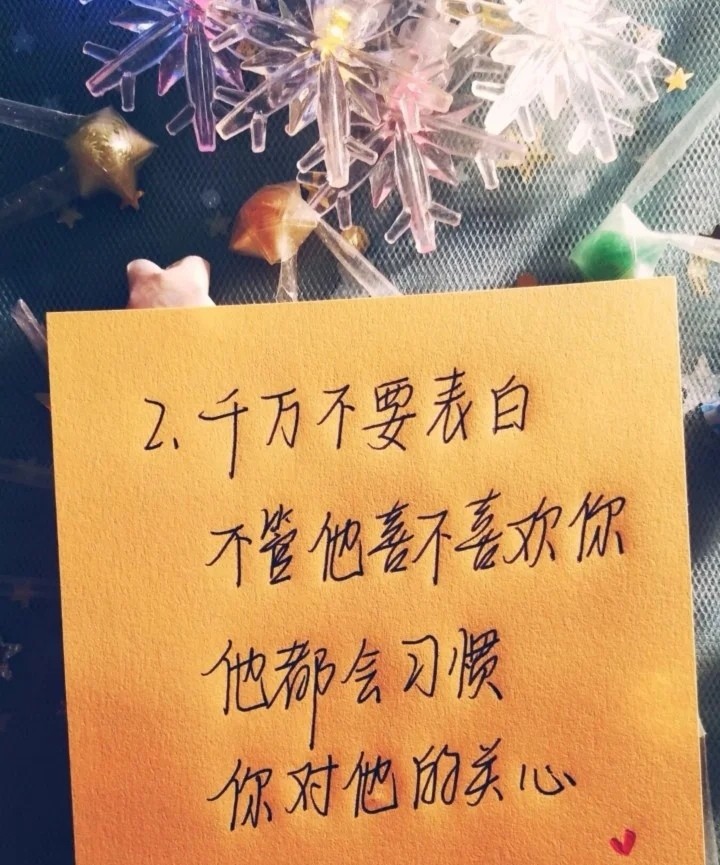 2、千万不要表白
不管他喜不喜欢你
他都会习惯
你对他的关心